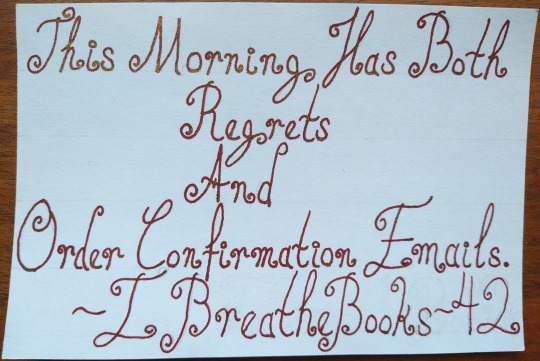 This Morning Has Both
Regrets
And
Order Confirmation Emails.
~I BreatheBooks~42